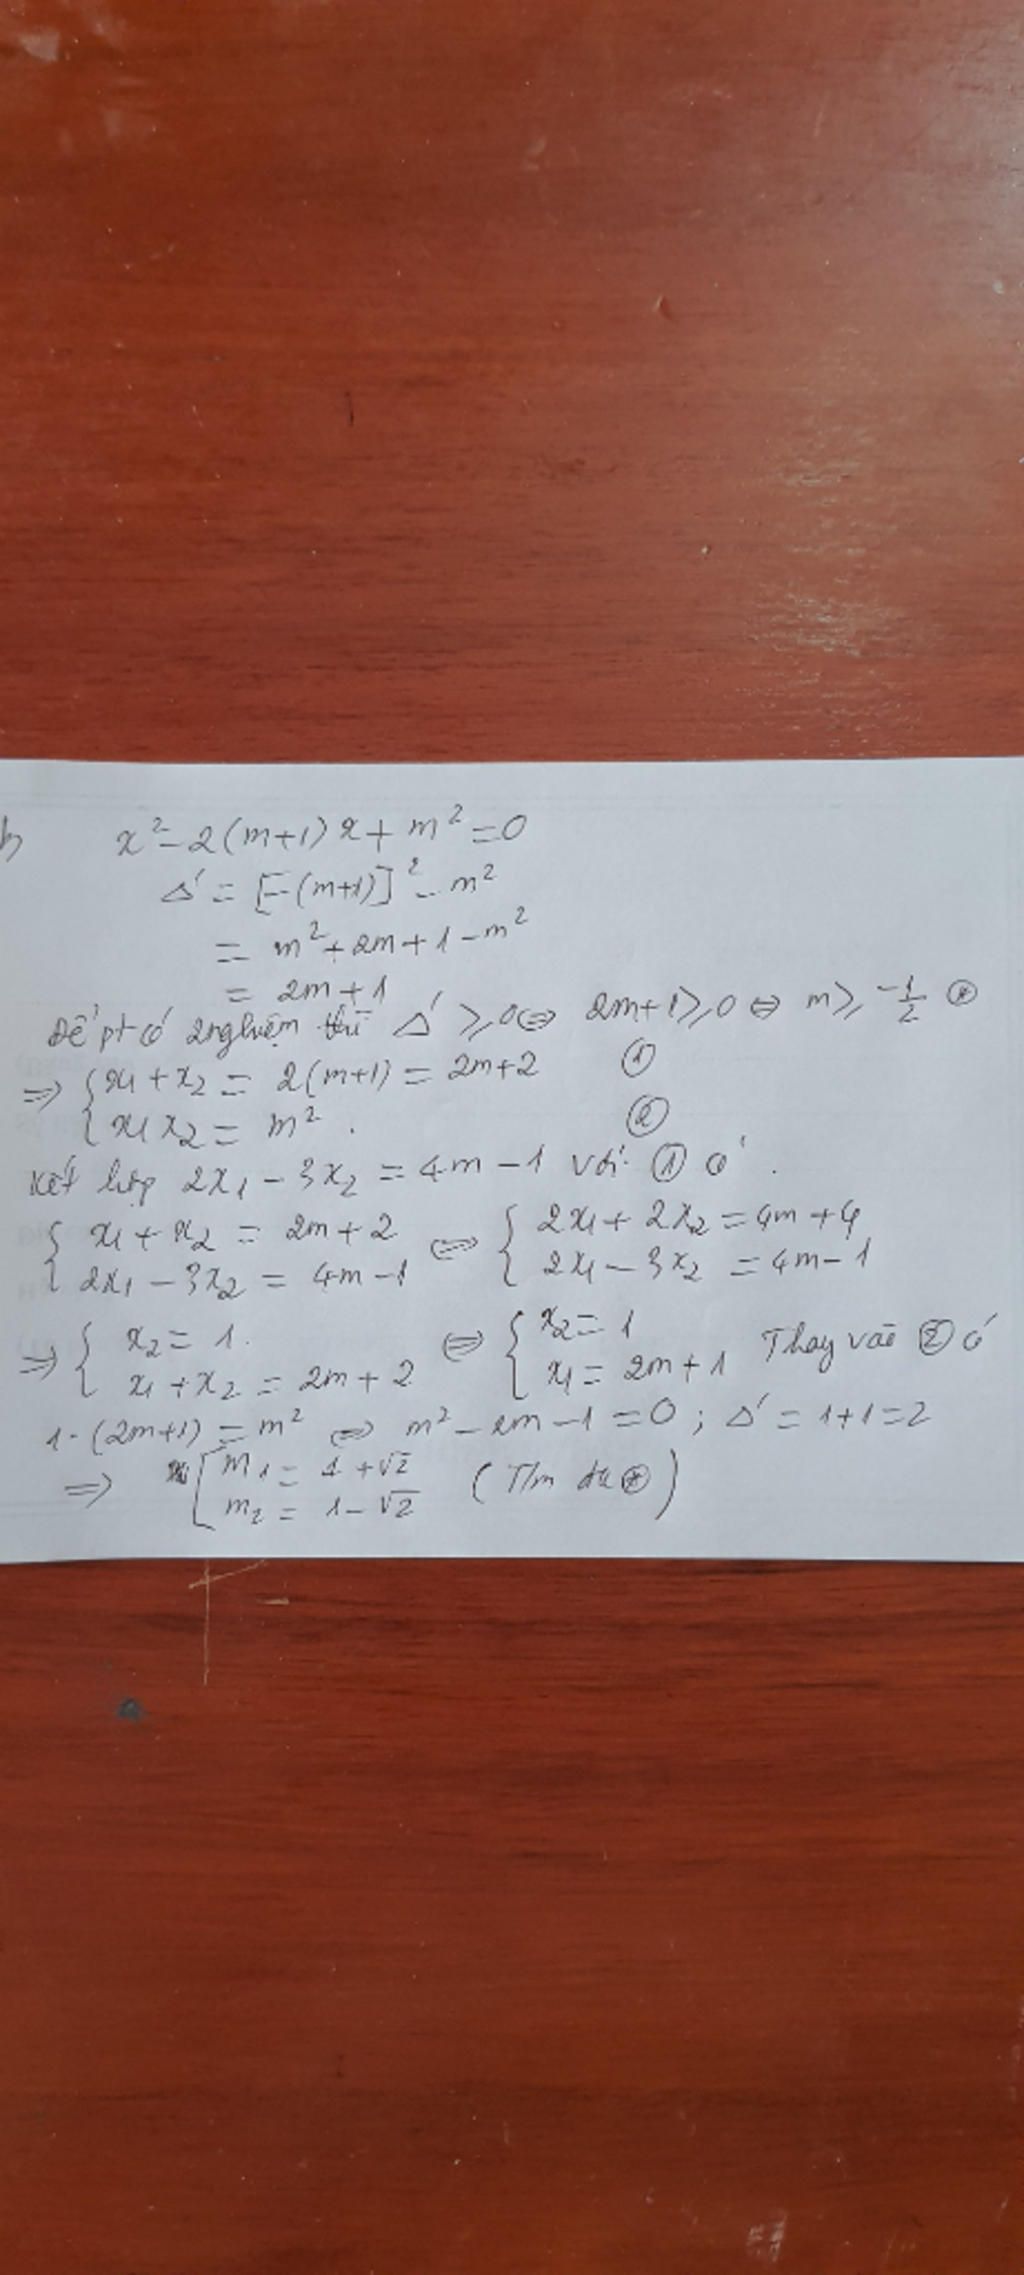 b) x² - 2(m+1)x + m² = 0
Δ' = [-(m+1)]² - m²
= m² + 2m + 1 - m²
= 2m + 1
Để pt có 2 nghiệm thì Δ' ≥ 0 ⇔ 2m+1 ≥ 0 ⇔ m ≥ -1/2 ⊛
⇒ { x₁ + x₂ = 2(m+1) = 2m+2 ①
x₁x₂ = m². ②
Kết hợp 2x₁ - 3x₂ = 4m - 1 với ① có.
{ x₁ + x₂ = 2m + 2 ⇔ { 2x₁ + 2x₂ = 4m + 4
2x₁ - 3x₂ = 4m - 1 2x₁ - 3x₂ = 4m - 1
⇒ { x₂ = 1. ⇔ { x₂ = 1 Thay vào ② có
x₁ + x₂ = 2m + 2 x₁ = 2m + 1
1·(2m+1) = m² ⇔ m² - 2m - 1 = 0 ; Δ' = 1+1 = 2
⇒ [ m₁ = 1 + √2 (T/m đk ⊛)
m₂ = 1 - √2